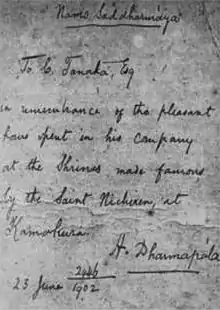 Namo Saddharmāya
To C. Tanaka Esq
in remembrance of the pleasant
hours spent in his company
at the Shrines made famous
by the Saint Nichiren, at
Kamakura.
H. Dharmapála
2446
23 June 1902